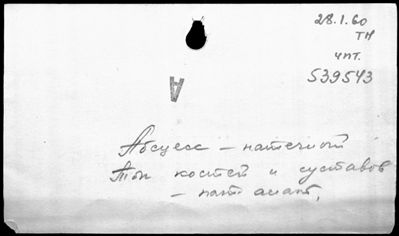 28.1.60
ТН
чит.
539543
А
Абсцесс – натечный
Тбк костей и суставов
– пат. анат.